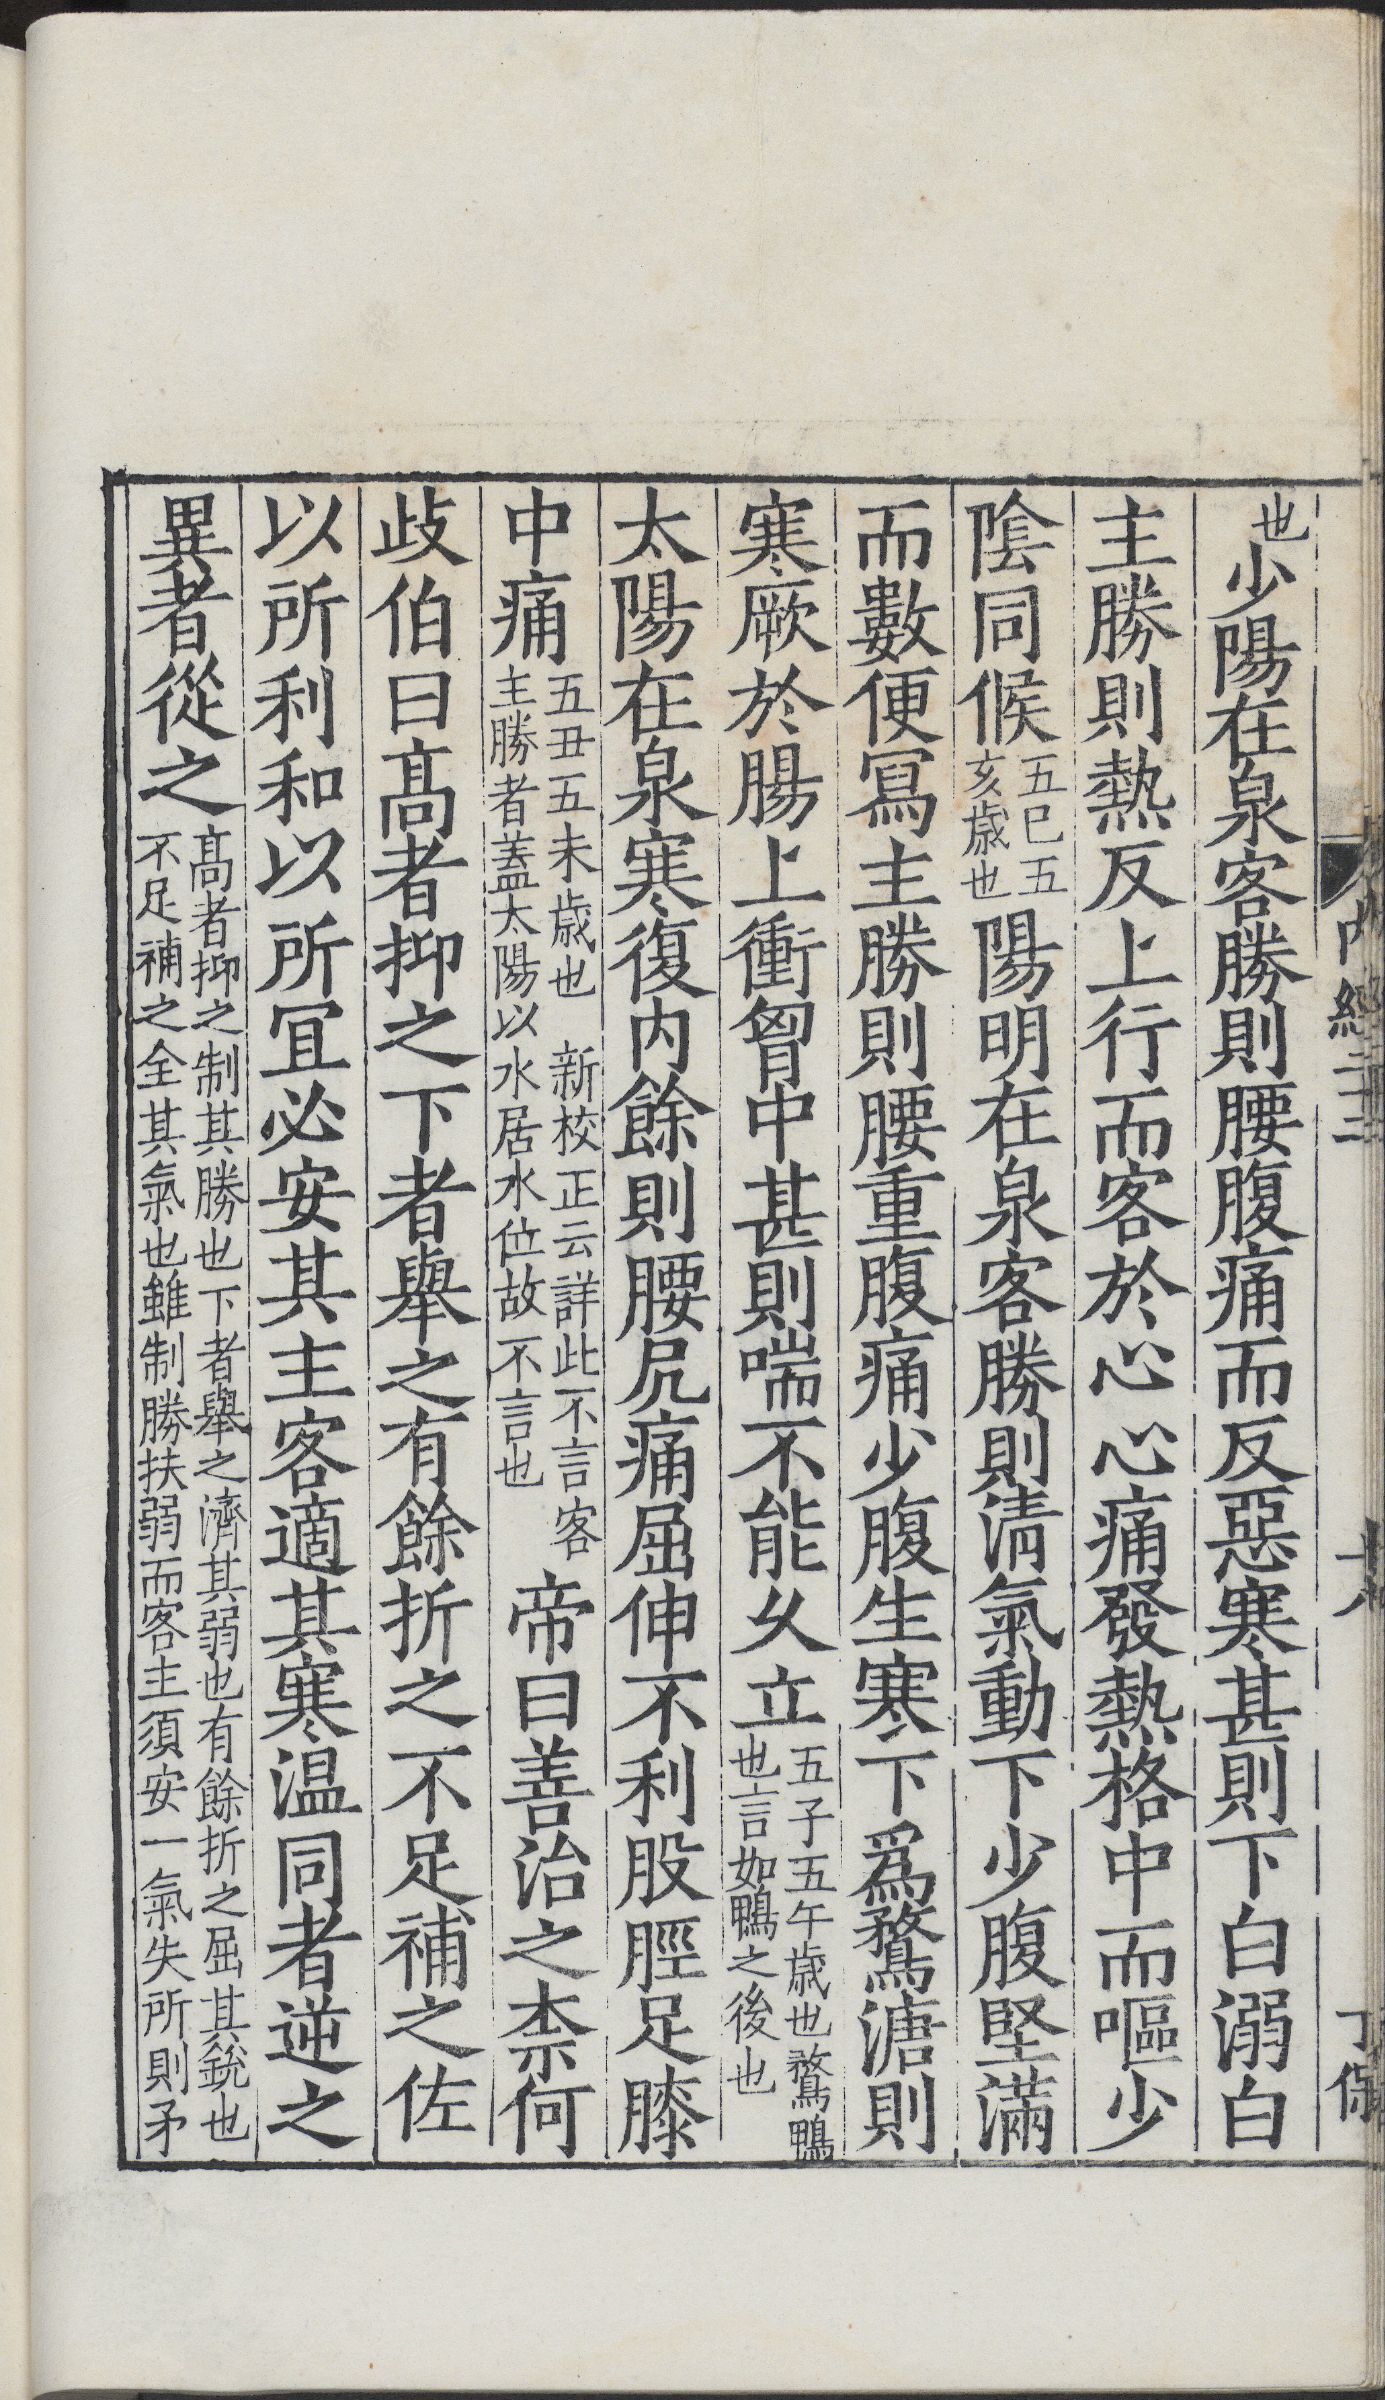 也少陽在泉客勝則腰腹痛而反惡寒甚則下白溺白
主勝則熱反上行而客於心心痛發熱格中而嘔少
陰同候五巳五亥歲也陽明在泉客勝則清氣動下少腹堅滿
而數便寫主勝則腰重腹痛少腹生寒下爲鶩溏則
寒厥於腸上衝胷中甚則喘不能久立五子五午歲也鶩鴨也言如鴨之後也
太陽在泉寒復內餘則腰尻痛屈伸不利股脛足膝
中痛五丑五未歲也　新校正云詳此不言客主勝者蓋太陽以水居水位故不言也　帝曰善治之柰何
歧伯曰髙者抑之下者舉之有餘折之不足補之佐
以所利和以所冝必安其主客適其寒温同者逆之
異者從之髙者抑之制其勝也下者舉之濟其弱也有餘折之屈其銳也不足補之全其氣也雖制勝扶弱而客主須安一氣失所則矛
內經二十二
十八
丁保